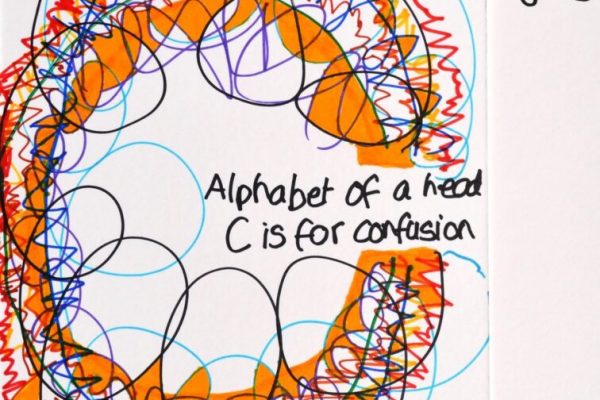 Alphabet of a head
C is for confusion